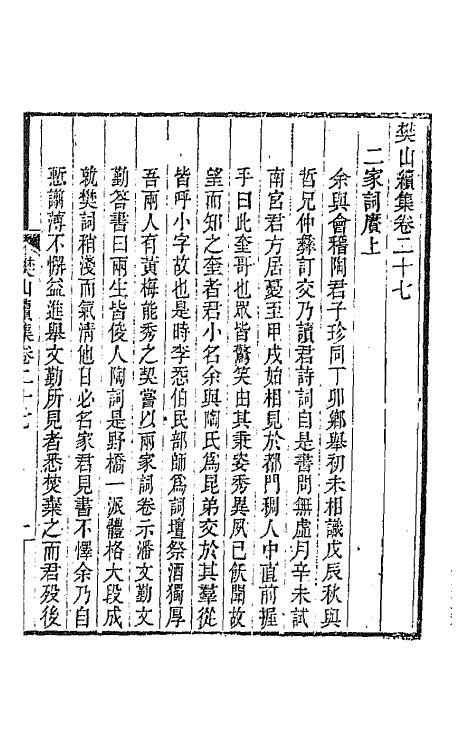 樊山續集卷二十七
二家詞賡上
余與會稽陶君子珍同丁卯鄉舉初未相識戊辰秋與
哲兄仲彝訂交乃讀君詩詞自是書問無虛月辛未試
南宮君方居憂至甲戌始相見於都門稠人中直前握
手曰此奎哥也眾皆驚笑由其秉姿秀異夙已飫聞故
望而知之奎者君小名余與陶氏為昆弟交於其羣從
皆呼小字故也是時李㤅伯民部師為詞壇祭酒獨厚
吾兩人有黃梅能秀之契嘗以兩家詞卷示潘文勤文
勤答書曰兩生皆俊人陶詞是野橋一派體格大段成
就樊詞稍淺而氣清他日必名家君見書不懌余乃自
慙譾薄不懈益進舉文勤所見者悉焚棄之而君歿後
樊山續集卷二十七 一